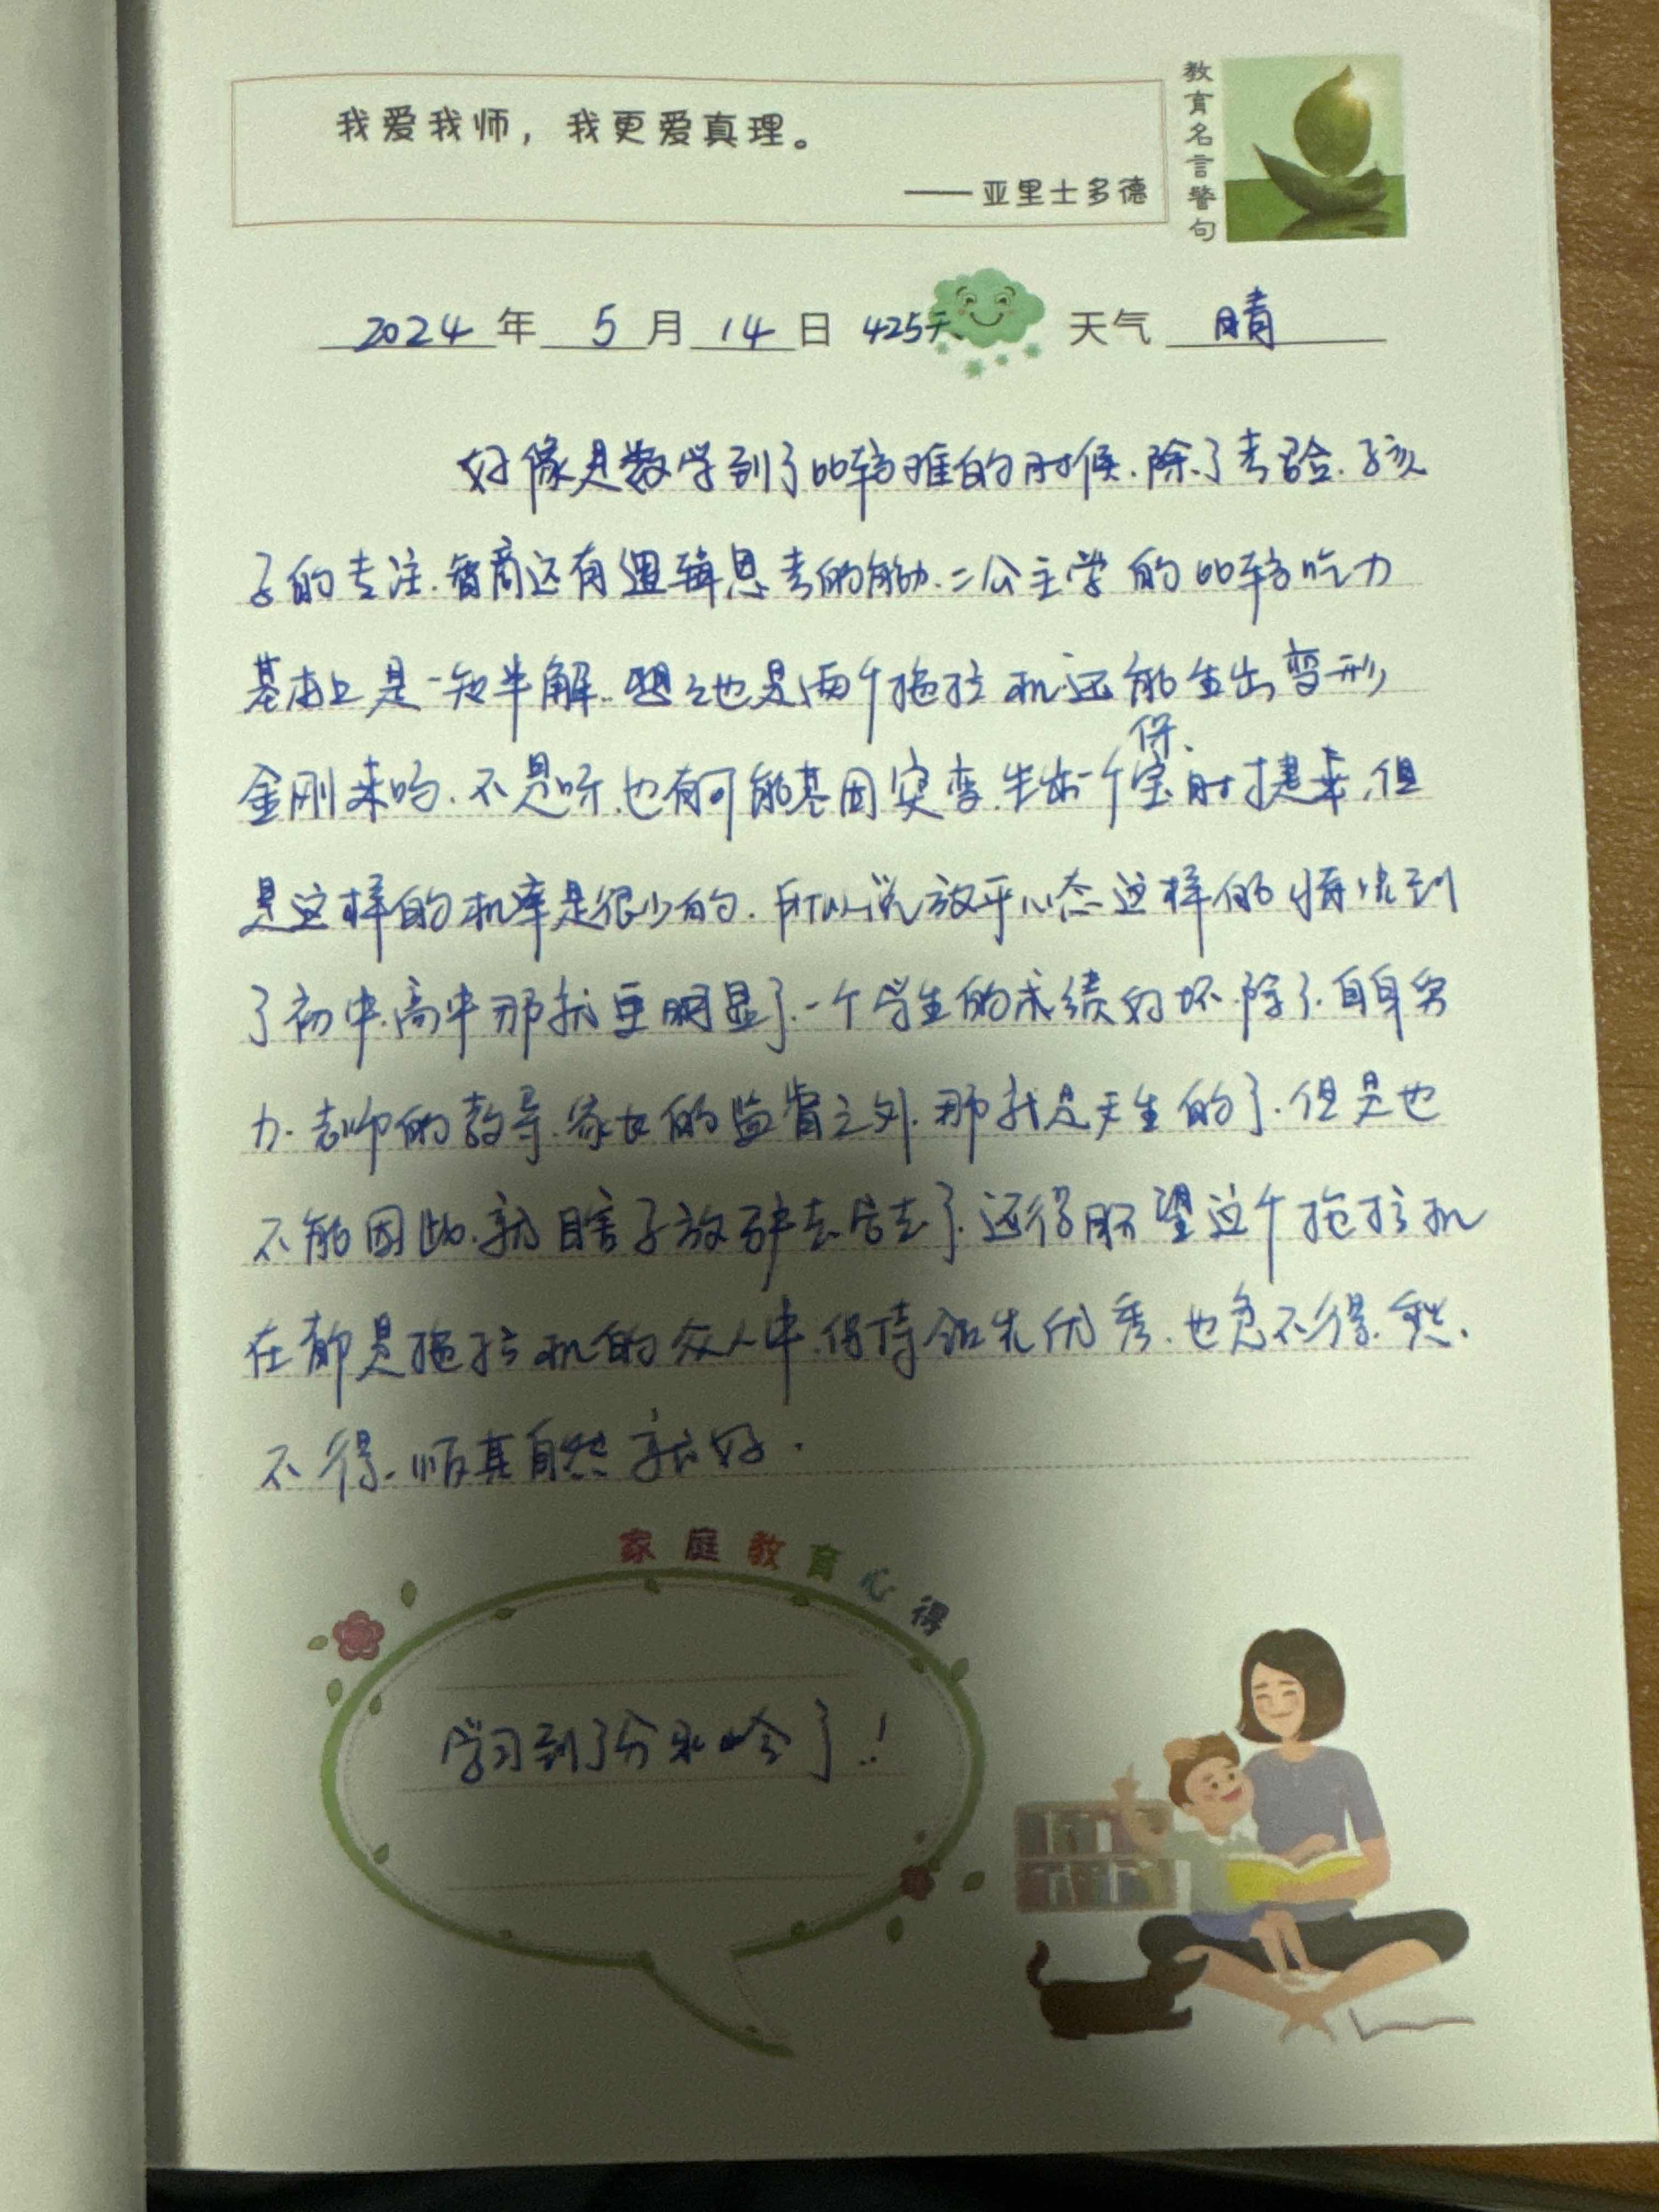 我爱我师，我更爱真理。
——亚里士多德
教育名言警句
2024年 5月 14日 425天 天气 晴
好像是数学到了比较难的时候.除了考验.孩
子的专注.智商还有逻辑思考的能力.二公主学的比较吃力
基本上是一知半解..想之也是两个拖拉机还能生出变形
金刚来吗.不是听.也有可能基因突变.生出一个宝时捷来.但
保.
是这样的机率是很少的.所以说放平心态这样的情况到
了初中.高中那就更明显了.一个学生的成绩好坏.除了.自身努
力.老师的教导.家长的监督之外.那就是天生的了.但是也
不能因此.就瞎子放驴去去了.还得盼望这个拖拉机
在都是拖拉机的众人中.保持领先优秀.也急不得.
不得.顺其自然就好.
家庭教育心得
学习到了分水岭了!